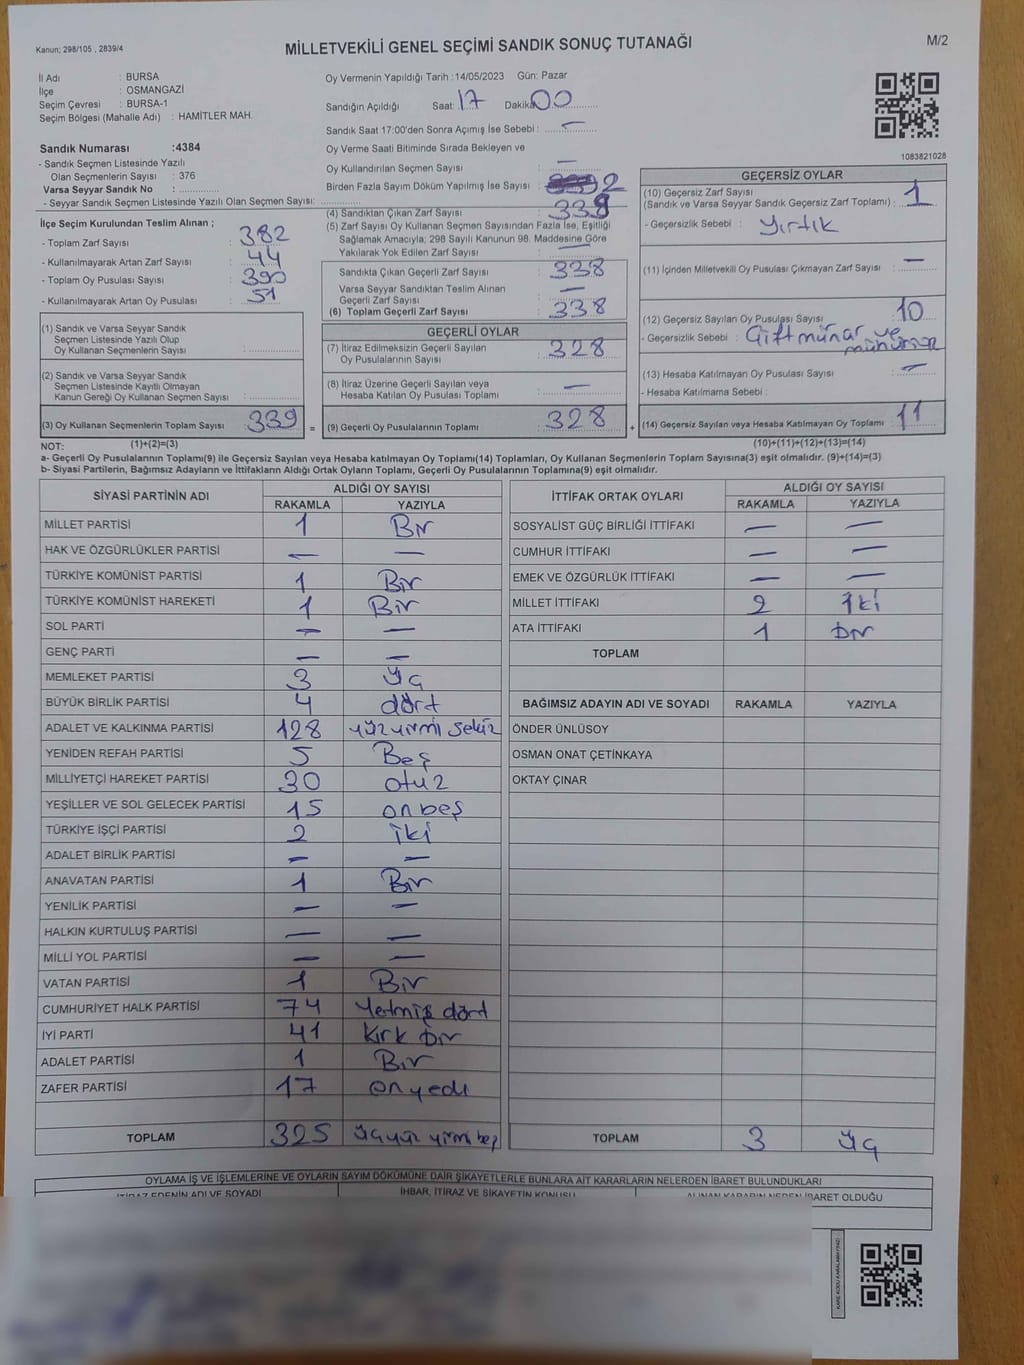 Kanun; 298/105 , 2839/4
MİLLETVEKİLİ GENEL SEÇİMİ SANDIK SONUÇ TUTANAĞI
M/2
İl Adı : BURSA
İlçe : OSMANGAZİ
Seçim Çevresi : BURSA-1
Seçim Bölgesi (Mahalle Adı) : HAMİTLER MAH.
Sandık Numarası :4384
- Sandık Seçmen Listesinde Yazılı
Olan Seçmenlerin Sayısı : 376
Varsa Seyyar Sandık No :
- Seyyar Sandık Seçmen Listesinde Yazılı Olan Seçmen Sayısı:
Oy Vermenin Yapıldığı Tarih :14/05/2023 Gün: Pazar
Sandığın Açıldığı Saat: 17 Dakika 00
Sandık Saat 17:00'den Sonra Açımış İse Sebebi : –
Oy Verme Saati Bitiminde Sırada Bekleyen ve
Oy Kullandırılan Seçmen Sayısı : –
Birden Fazla Sayım Döküm Yapılmış İse Sayısı : 2
1083821028
İlçe Seçim Kurulundan Teslim Alınan ;
- Toplam Zarf Sayısı : 382
- Kullanılmayarak Artan Zarf Sayısı : 44
- Toplam Oy Pusulası Sayısı : 390
- Kullanılmayarak Artan Oy Pusulası : 51
(1) Sandık ve Varsa Seyyar Sandık
Seçmen Listesinde Yazılı Olup
Oy Kullanan Seçmenlerin Sayısı :
(2) Sandık ve Varsa Seyyar Sandık
Seçmen Listesinde Kayıtlı Olmayan
Kanun Gereği Oy Kullanan Seçmen Sayısı :
(3) Oy Kullanan Seçmenlerin Toplam Sayısı : 339 =
(4) Sandıktan Çıkan Zarf Sayısı : 339
(5) Zarf Sayısı Oy Kullanan Seçmen Sayısından Fazla İse, Eşitliği
Sağlamak Amacıyla; 298 Sayılı Kanunun 98. Maddesine Göre
Yakılarak Yok Edilen Zarf Sayısı : –
Sandıkta Çıkan Geçerli Zarf Sayısı : 338
Varsa Seyyar Sandıktan Teslim Alınan
Geçerli Zarf Sayısı : –
(6) Toplam Geçerli Zarf Sayısı : 338
GEÇERLİ OYLAR
(7) İtiraz Edilmeksizin Geçerli Sayılan
Oy Pusulalarının Sayısı : 328
(8) İtiraz Üzerine Geçerli Sayılan veya
Hesaba Katılan Oy Pusulası Toplamı : –
(9) Geçerli Oy Pusulalarının Toplamı : 328 +
GEÇERSİZ OYLAR
(10) Geçersiz Zarf Sayısı
(Sandık ve Varsa Seyyar Sandık Geçersiz Zarf Toplamı) : 1
- Geçersizlik Sebebi : Yırtık
(11) İçinden Milletvekili Oy Pusulası Çıkmayan Zarf Sayısı : –
(12) Geçersiz Sayılan Oy Pusulası Sayısı : 10
- Geçersizlik Sebebi : Çift mühür ve
(13) Hesaba Katılmayan Oy Pusulası Sayısı : –
- Hesaba Katılmama Sebebi :
(14) Geçersiz Sayılan veya Hesaba Katılmayan Oy Toplamı : 11
NOT: (1)+(2)=(3) (10)+(11)+(12)+(13)=(14)
a- Geçerli Oy Pusulalarının Toplamı(9) ile Geçersiz Sayılan veya Hesaba katılmayan Oy Toplamı(14) Toplamları, Oy Kullanan Seçmenlerin Toplam Sayısına(3) eşit olmalıdır. (9)+(14)=(3)
b- Siyasi Partilerin, Bağımsız Adayların ve İttifakların Aldığı Ortak Oyların Toplamı, Geçerli Oy Pusulalarının Toplamına(9) eşit olmalıdır.
SİYASİ PARTİNİN ADI ALDIĞI OY SAYISI
RAKAMLA YAZIYLA
MİLLET PARTİSİ 1 Bir
HAK VE ÖZGÜRLÜKLER PARTİSİ – –
TÜRKİYE KOMÜNİST PARTİSİ 1 Bir
TÜRKİYE KOMÜNİST HAREKETİ 1 Bir
SOL PARTİ – –
GENÇ PARTİ – –
MEMLEKET PARTİSİ 3 üç
BÜYÜK BİRLİK PARTİSİ 4 dört
ADALET VE KALKINMA PARTİSİ 128 yüzyirmi sekiz
YENİDEN REFAH PARTİSİ 5 Beş
MİLLİYETÇİ HAREKET PARTİSİ 30 otuz
YEŞİLLER VE SOL GELECEK PARTİSİ 15 onbeş
TÜRKİYE İŞÇİ PARTİSİ 2 iki
ADALET BİRLİK PARTİSİ – –
ANAVATAN PARTİSİ 1 Bir
YENİLİK PARTİSİ – –
HALKIN KURTULUŞ PARTİSİ – –
MİLLİ YOL PARTİSİ – –
VATAN PARTİSİ 1 Bir
CUMHURİYET HALK PARTİSİ 74 Yetmiş dört
İYİ PARTİ 41 Kırk bir
ADALET PARTİSİ 1 Bir
ZAFER PARTİSİ 17 onyedi
TOPLAM 325 üçyüz yirmi beş
İTTİFAK ORTAK OYLARI ALDIĞI OY SAYISI
RAKAMLA YAZIYLA
SOSYALİST GÜÇ BİRLİĞİ İTTİFAKI – –
CUMHUR İTTİFAKI – –
EMEK VE ÖZGÜRLÜK İTTİFAKI – –
MİLLET İTTİFAKI 2 iki
ATA İTTİFAKI 1 bir
TOPLAM
BAĞIMSIZ ADAYIN ADI VE SOYADI RAKAMLA YAZIYLA
ÖNDER ÜNLÜSOY
OSMAN ONAT ÇETİNKAYA
OKTAY ÇINAR
TOPLAM 3 üç
OYLAMA İŞ VE İŞLEMLERİNE VE OYLARIN SAYIM DÖKÜMÜNE DAİR ŞİKAYETLERLE BUNLARA AİT KARARLARIN NELERDEN İBARET BULUNDUKLARI
İTİRAZ EDENİN ADI VE SOYADI İHBAR, İTİRAZ VE ŞİKAYETİN KONUSU ALINAN KARARIN NEDEN İBARET OLDUĞU